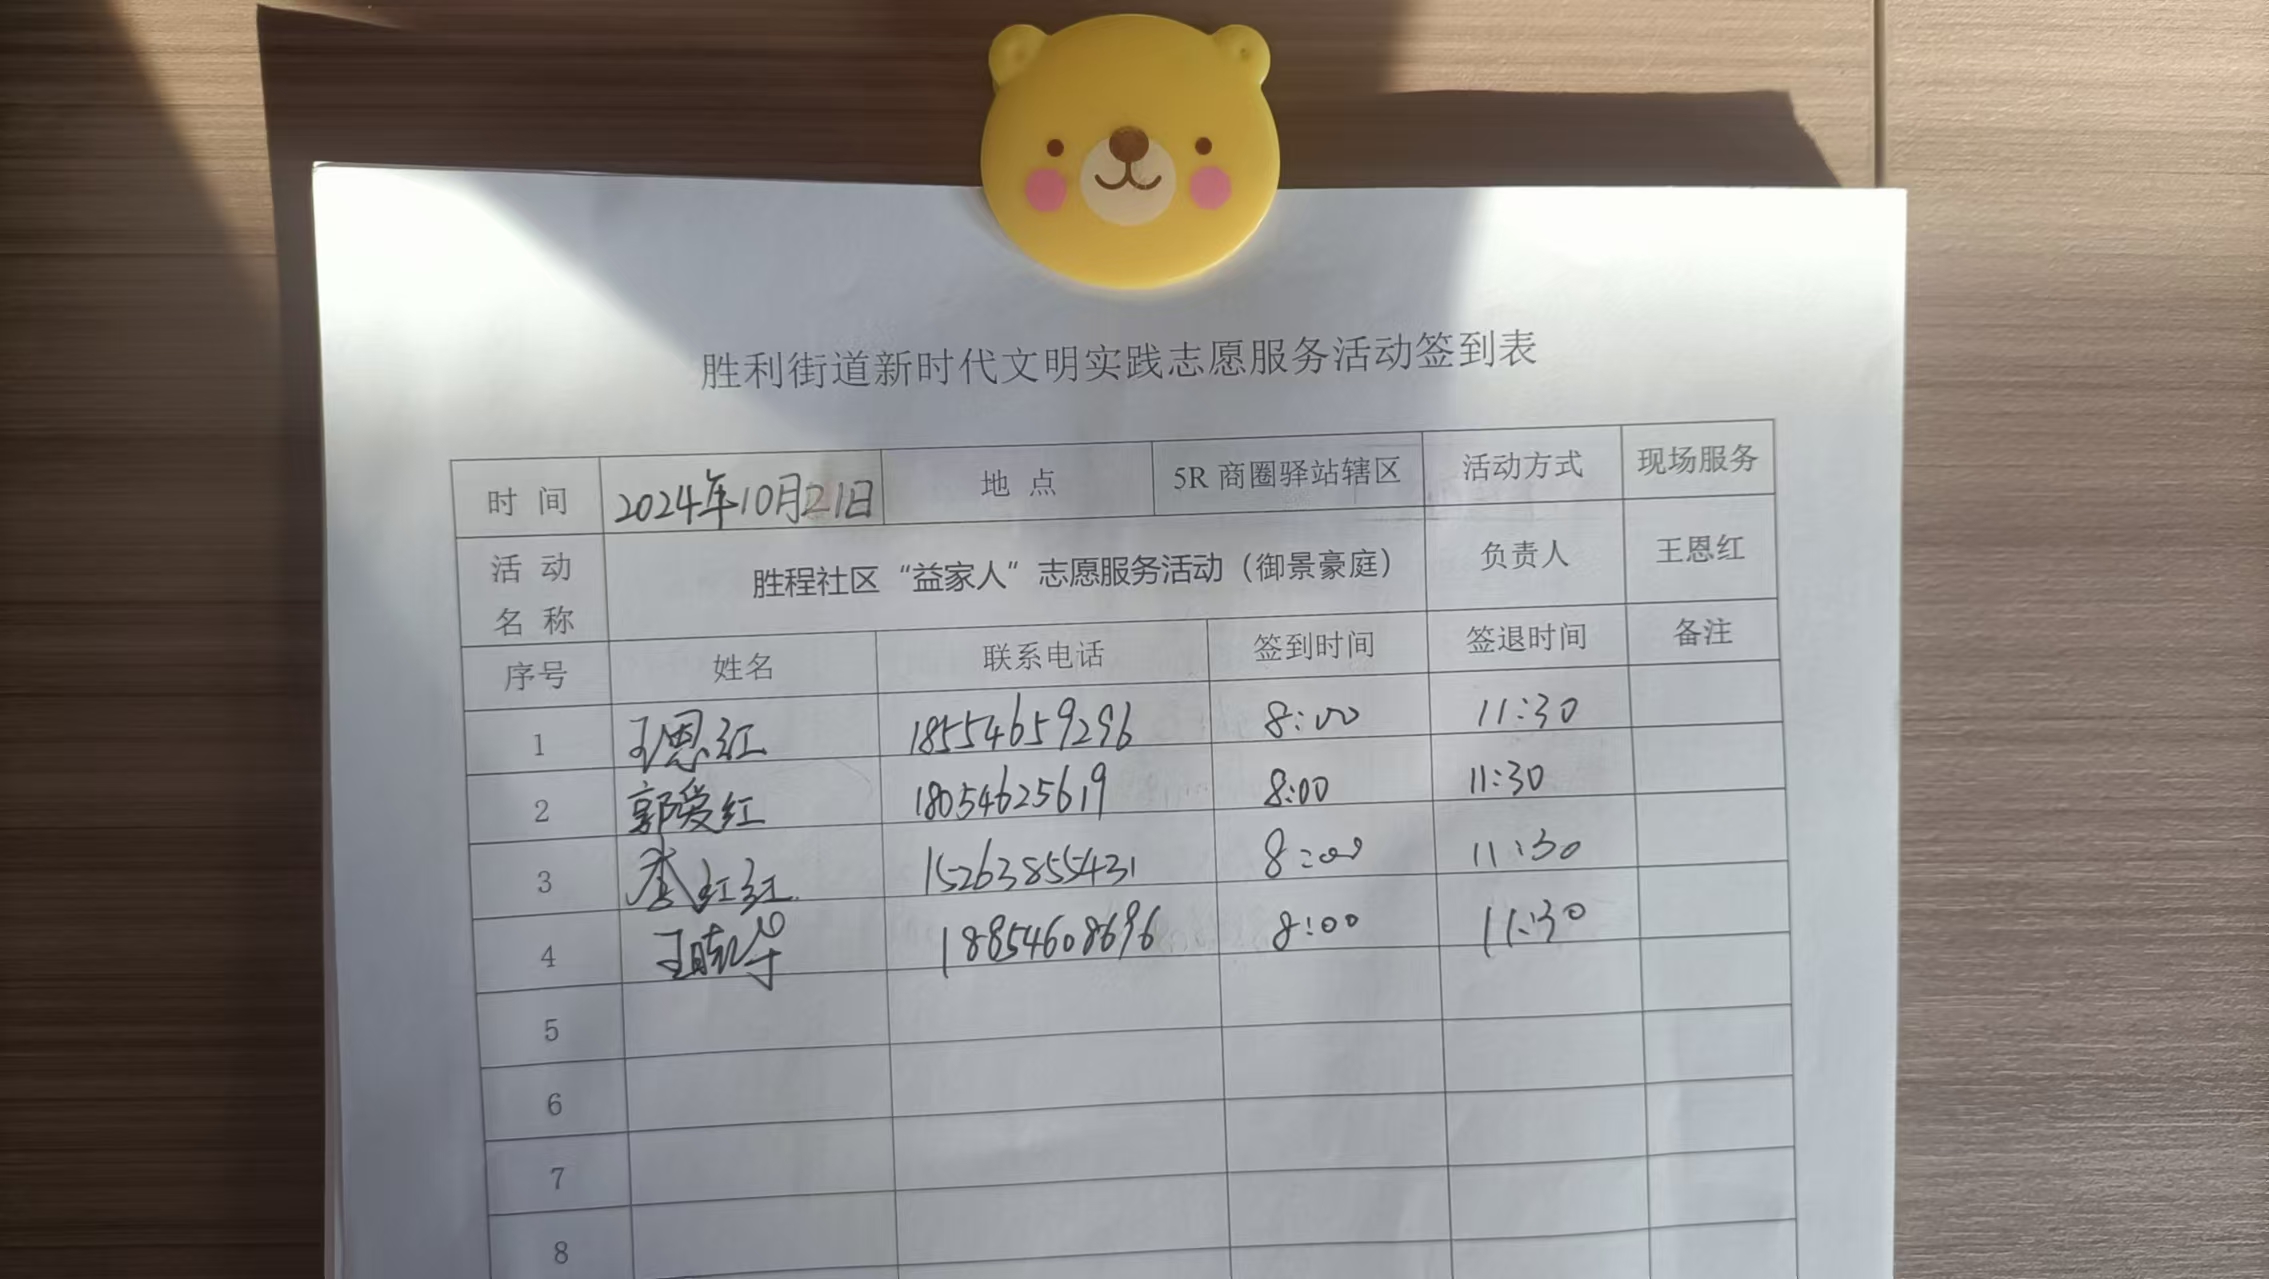 胜利街道新时代文明实践志愿服务活动签到表
时 间 2024年10月21日 地 点 5R 商圈驿站辖区 活动方式 现场服务
活 动 名 称 胜程社区“益家人”志愿服务活动（御景豪庭） 负责人 王恩红
序号 姓名 联系电话 签到时间 签退时间 备注
1 王恩红 18554659296 8:00 11:30
2 郭爱红 18054625619 8:00 11:30
3 李红红 15263855431 8:00 11:30
4 王晓 18854608696 8:00 11:30
5
6
7
8